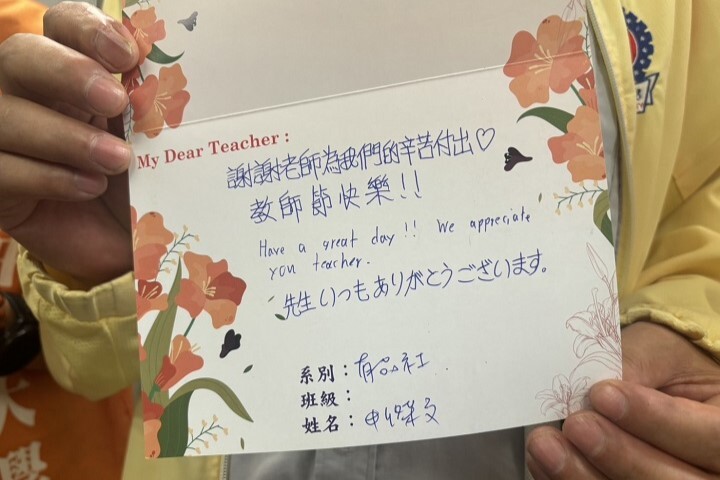 My Dear Teacher :
謝謝老師為我們的辛苦付出♡
教師節快樂!!
Have a great day !! We appreciate
you teacher.
先生いつもありがとうございます。
系別：有品社
班級：
姓名：
大
學